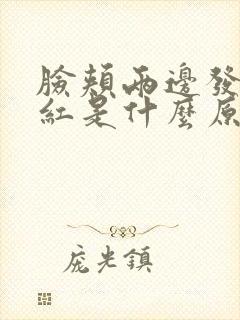 臉頰兩邊發
紅是什麼原
庞光鎮